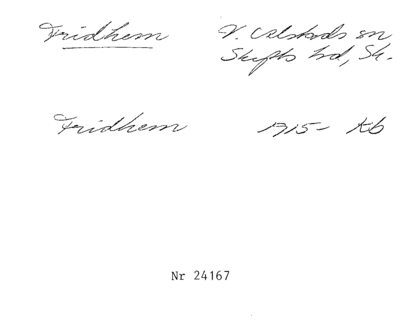 Fridhem
V. Alstads sn
Skytts hd, Sk.
Fridhem 1915- Kb
Nr 24167